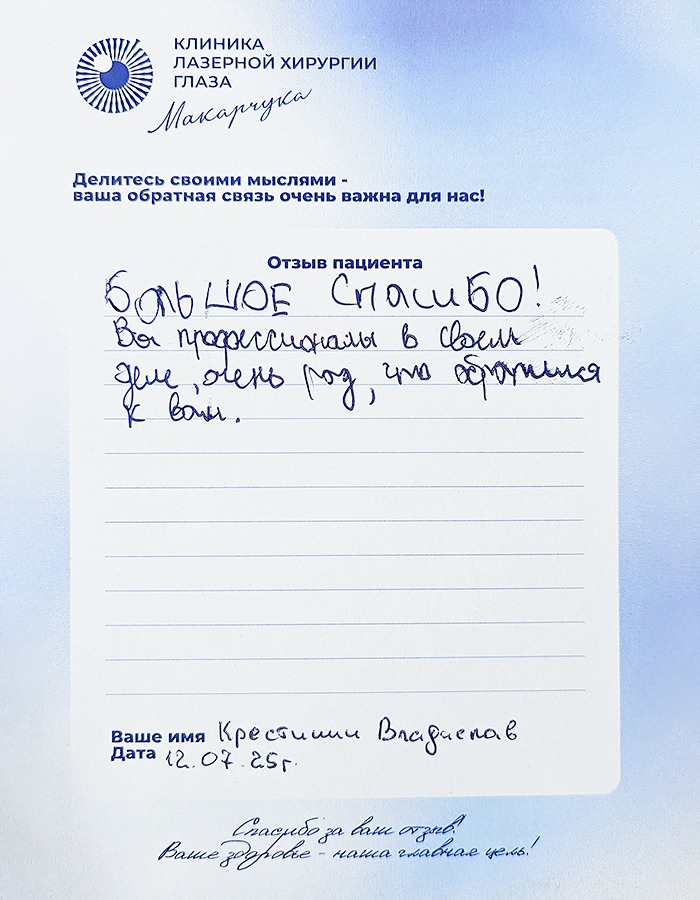 КЛИНИКА
ЛАЗЕРНОЙ ХИРУРГИИ
ГЛАЗА
Макарчука
Делитесь своими мыслями -
ваша обратная связь очень важна для нас!
Отзыв пациента
БОЛЬШОЕ СПАСИБО!
Вы профессионалы в своем
деле, очень рад, что обратился
к вам.
Ваше имя Крестинин Владислав
Дата 12.07.25г.
Спасибо за ваш отзыв!
Ваше здоровье - наша главная цель!